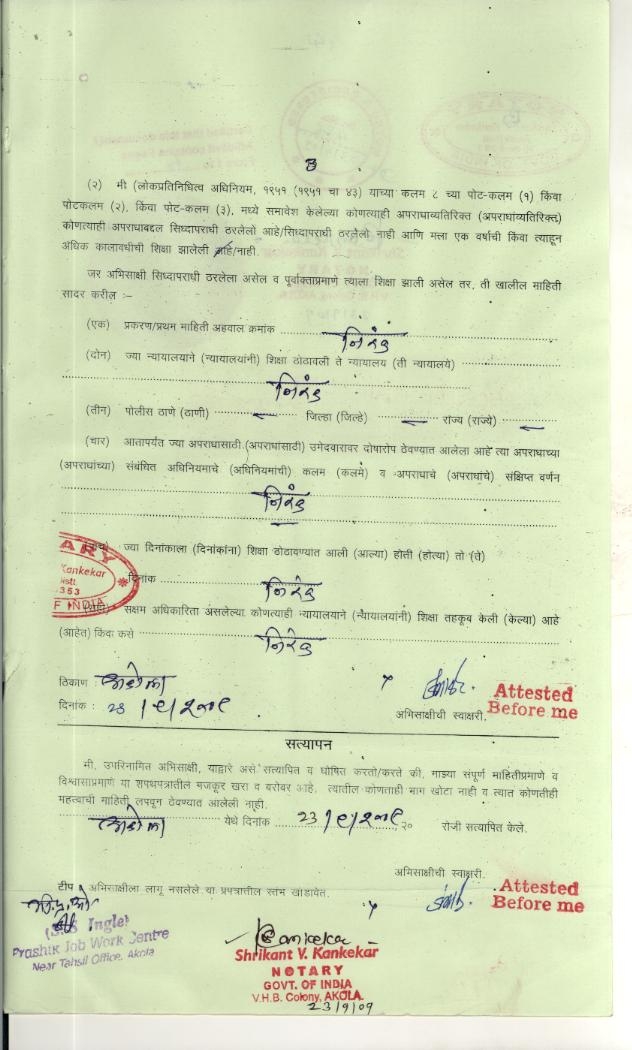 3
(२) मी (लोकप्रतिनिधित्व अधिनियम, १९५१ (१९५१ चा ४३) याच्या कलम ८ च्या पोट-कलम (१) किंवा
पोटकलम (२), किंवा पोट-कलम (३), मध्ये समावेश केलेल्या कोणत्याही अपराधाव्यतिरिक्त (अपराधांव्यतिरिक्त)
कोणत्याही अपराधाबद्दल सिध्दापराधी ठरलेलो आहे/सिध्दापराधी ठरलेलो नाही आणि मला एक वर्षाची किंवा त्याहून
अधिक कालावधीची शिक्षा झालेली आहे/नाही.
जर अभिसाक्षी सिध्दापराधी ठरलेला असेल व पूर्वोक्ताप्रमाणे त्याला शिक्षा झाली असेल तर, ती खालील माहिती
सादर करील :-
(एक) प्रकरण/प्रथम माहिती अहवाल क्रमांक निरंक
(दोन) ज्या न्यायालयाने (न्यायालयांनी) शिक्षा ठोठावली ते न्यायालय (ती न्यायालये)
निरंक
(तीन) पोलीस ठाणे (ठाणी) – जिल्हा (जिल्हे) – राज्य (राज्ये) –
(चार) आतापर्यंत ज्या अपराधासाठी (अपराधांसाठी) उमेदवारावर दोषारोप ठेवण्यात आलेला आहे त्या अपराधाच्या
(अपराधांच्या) संबंधित अधिनियमाचे (अधिनियमांची) कलम (कलमे) व अपराधाचे (अपराधांचे) संक्षिप्त वर्णन
निरंक
ज्या दिनांकाला (दिनांकांना) शिक्षा ठोठावण्यात आली (आल्या) होती (होत्या) तो (ते)
दिनांक निरंक
सक्षम अधिकारिता असलेल्या कोणत्याही न्यायालयाने (न्यायालयांनी) शिक्षा तहकूब केली (केल्या) आहे
(आहेत) किंवा कसे निरंक
TARY
Kankekar
353
F INDIA
ठिकाण : अकोला
दिनांक : 23/९/२००९
अभिसाक्षीची स्वाक्षरी.
Attested
Before me
सत्यापन
मी, उपरिनामित अभिसाक्षी, याद्वारे असे सत्यापित व घोषित करतो/करते की, माझ्या संपूर्ण माहितीप्रमाणे व
विश्वासाप्रमाणे या शपथपत्रातील मजकूर खरा व बरोबर आहे. त्यातील कोणताही भाग खोटा नाही व त्यात कोणतीही
महत्वाची माहिती लपवून ठेवण्यात आलेली नाही.
अकोला येथे दिनांक 23/९/२००९, २० रोजी सत्यापित केले.
अभिसाक्षीची स्वाक्षरी.
टीप : अभिसाक्षीला लागू नसलेले या प्रपत्रातील स्तंभ खोडावेत.
Attested
Before me
Ingle)
Prashik Job Work Centre
Near Tahsil Office, Akola
Kankekar
Shrikant V. Kankekar
NOTARY
GOVT. OF INDIA
V.H.B. Colony, AKOLA.
23/9/09